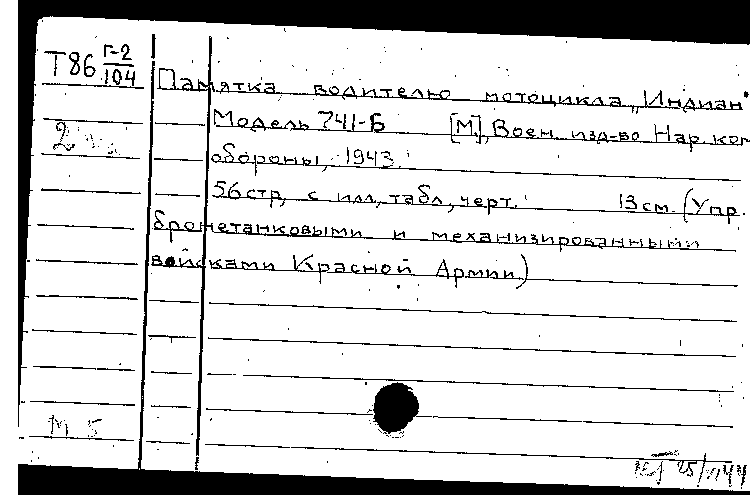 Т86 Г-2
104
Памятка водителю мотоцикла „Индиан"
Модель 741-Б [М.], Воен. изд-во Нар. ком.
обороны, 1943.
56 стр. с илл., табл., черт. 13 см. (Упр.
бронетанковыми и механизированными
войсками Красной Армии)
2
М 5